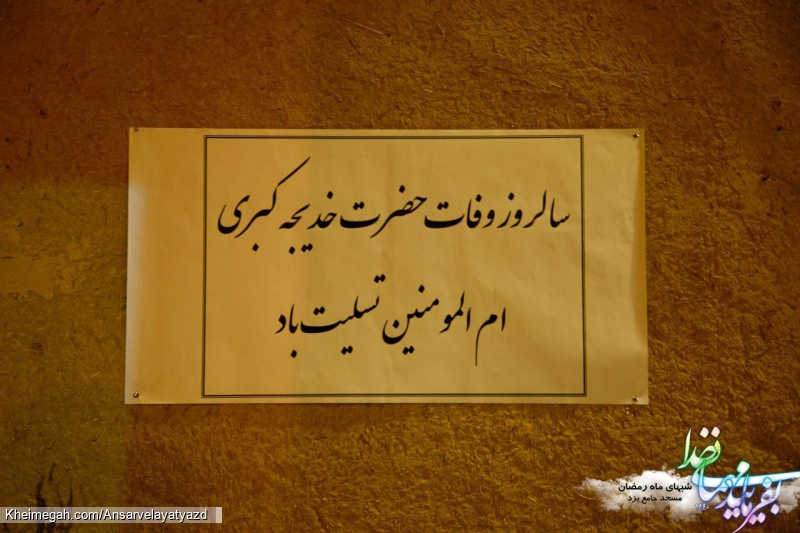 سالروز وفات حضرت خدیجه کبری
ام المومنین تسلیت باد
بفرمایید مهمانی خدا
شبهای ماه رمضان
مسجد جامع یزد
Kheimegah.com/Ansarvelayatyazd